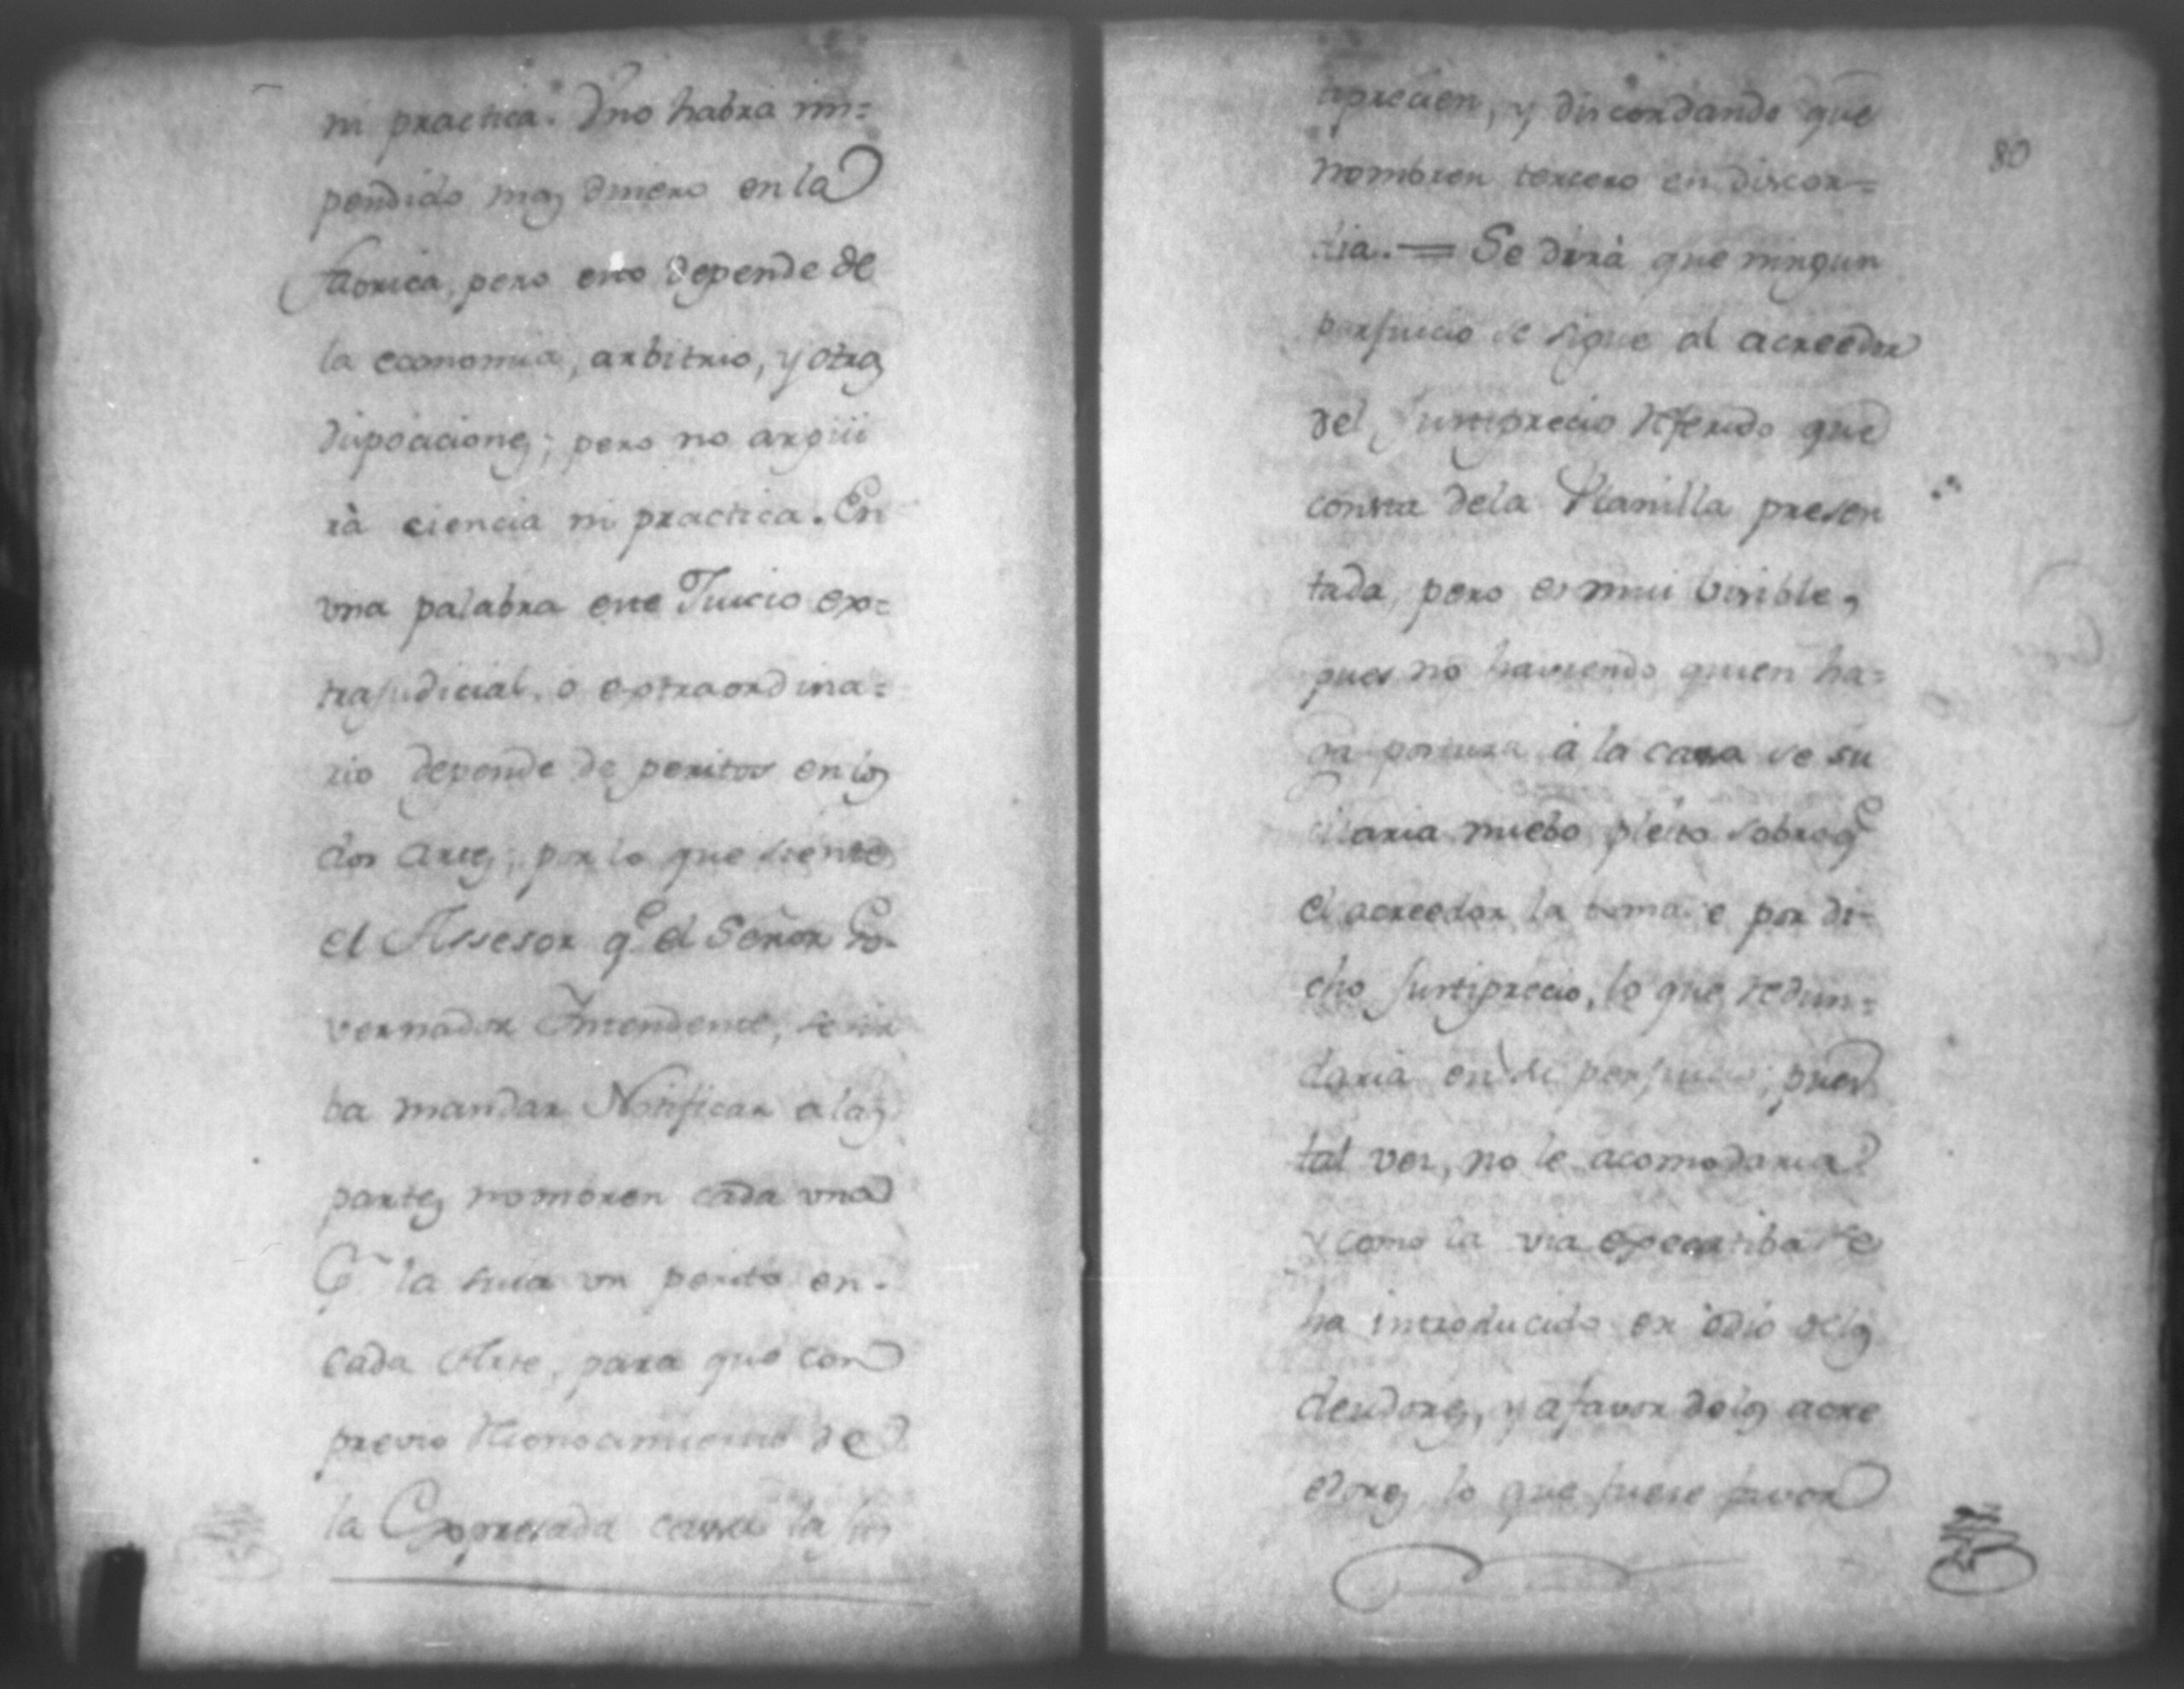 ni practica. Dno habrá im=
pendido mas dinero en la
fabrica, pero esto depende de
la economia, arbitrio, y otras
dispociciones; pero no argüi
rà ciencia ni practica. En
vna palabra este Juicio ex=
trajudicial, o extraordina=
rio depende de peritos en los
dos Artes; por lo que siente
el Assesor q.e el Señor Go-
vernador Yntendente, se sir
ba mandar Notificar a las
partes nombren cada vna
p.r la suia vn perito en-
cada Arte, para que con
previo Reconocimiento de
la Expresada cassa la
aprecien, y discordando que
nombren tercero en discor=
dia. = Se dirà que ningun
perjuicio se sigue al acreedor
del Justiprecio Referido que
consta dela Planilla presen
tada, pero es mui bisible,
pues no haviendo quien ha=
ga postura à la cassa se su
citaria nuebo pleito sobre q.e
el acreedor la tomase por di-
cho Justiprecio, lo que redun=
daria en su perjuicio; pues
tal ves, no le acomodaria
y como la via executiba se
ha introducido en odio delos
deudores, y a favor delos acre
edores, lo que fuese favor
80